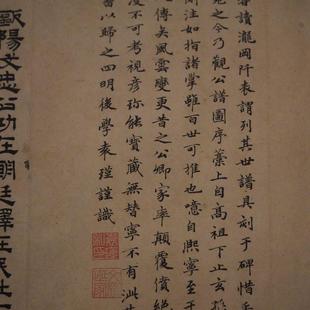 讀瀧岡阡表謂列其世譜具刻于碑惜乎
之今乃觀公譜圖序藁上自高祖下止玄
注如指諸掌雖百世可推也噫自熙寧至
傳矣風雲變更昔之公卿家率顛覆僨絕
不可考視彥珍能寶藏無替寧不有泚
書以歸之四明後學袁瑾謹識
歐陽文忠公功在朝廷澤在民社